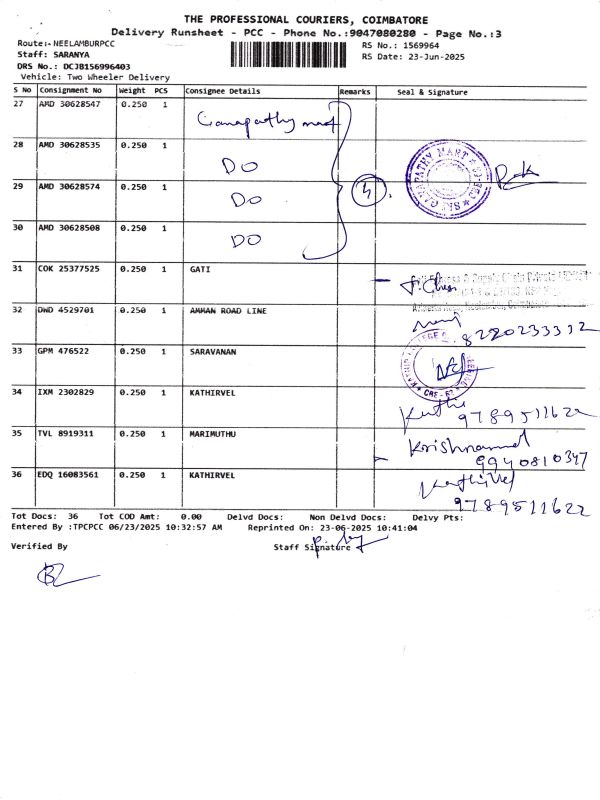 THE PROFESSIONAL COURIERS, COIMBATORE
Delivery Runsheet - PCC - Phone No.:9047080280 - Page No.:3
Route:- NEELAMBURPCC
RS No.: 1569964
Staff: SARANYA
RS Date: 23-Jun-2025
DRS No.: DCJB156996403
Vehicle: Two Wheeler Delivery
S No Consignment No Weight PCS Consignee Details Remarks Seal & Signature
27 AMD 30628547 0.250 1 Ganapathy mart
28 AMD 30628535 0.250 1 DO
29 AMD 30628574 0.250 1 DO
4
30 AMD 30628508 0.250 1 DO
31 COK 25377525 0.250 1 GATI
32 DWD 4529701 0.250 1 AMMAN ROAD LINE
8220233312
33 GPM 476522 0.250 1 SARAVANAN
34 IXM 2302829 0.250 1 KATHIRVEL
9789511622
35 TVL 8919311 0.250 1 MARIMUTHU
9940810347
36 EDQ 16083561 0.250 1 KATHIRVEL
Kathirvel
9789511622
Tot Docs: 36 Tot COD Amt: 0.00 Delvd Docs: Non Delvd Docs: Delvy Pts:
Entered By :TPCPCC 06/23/2025 10:32:57 AM Reprinted On: 23-06-2025 10:41:04
Verified By Staff Signature